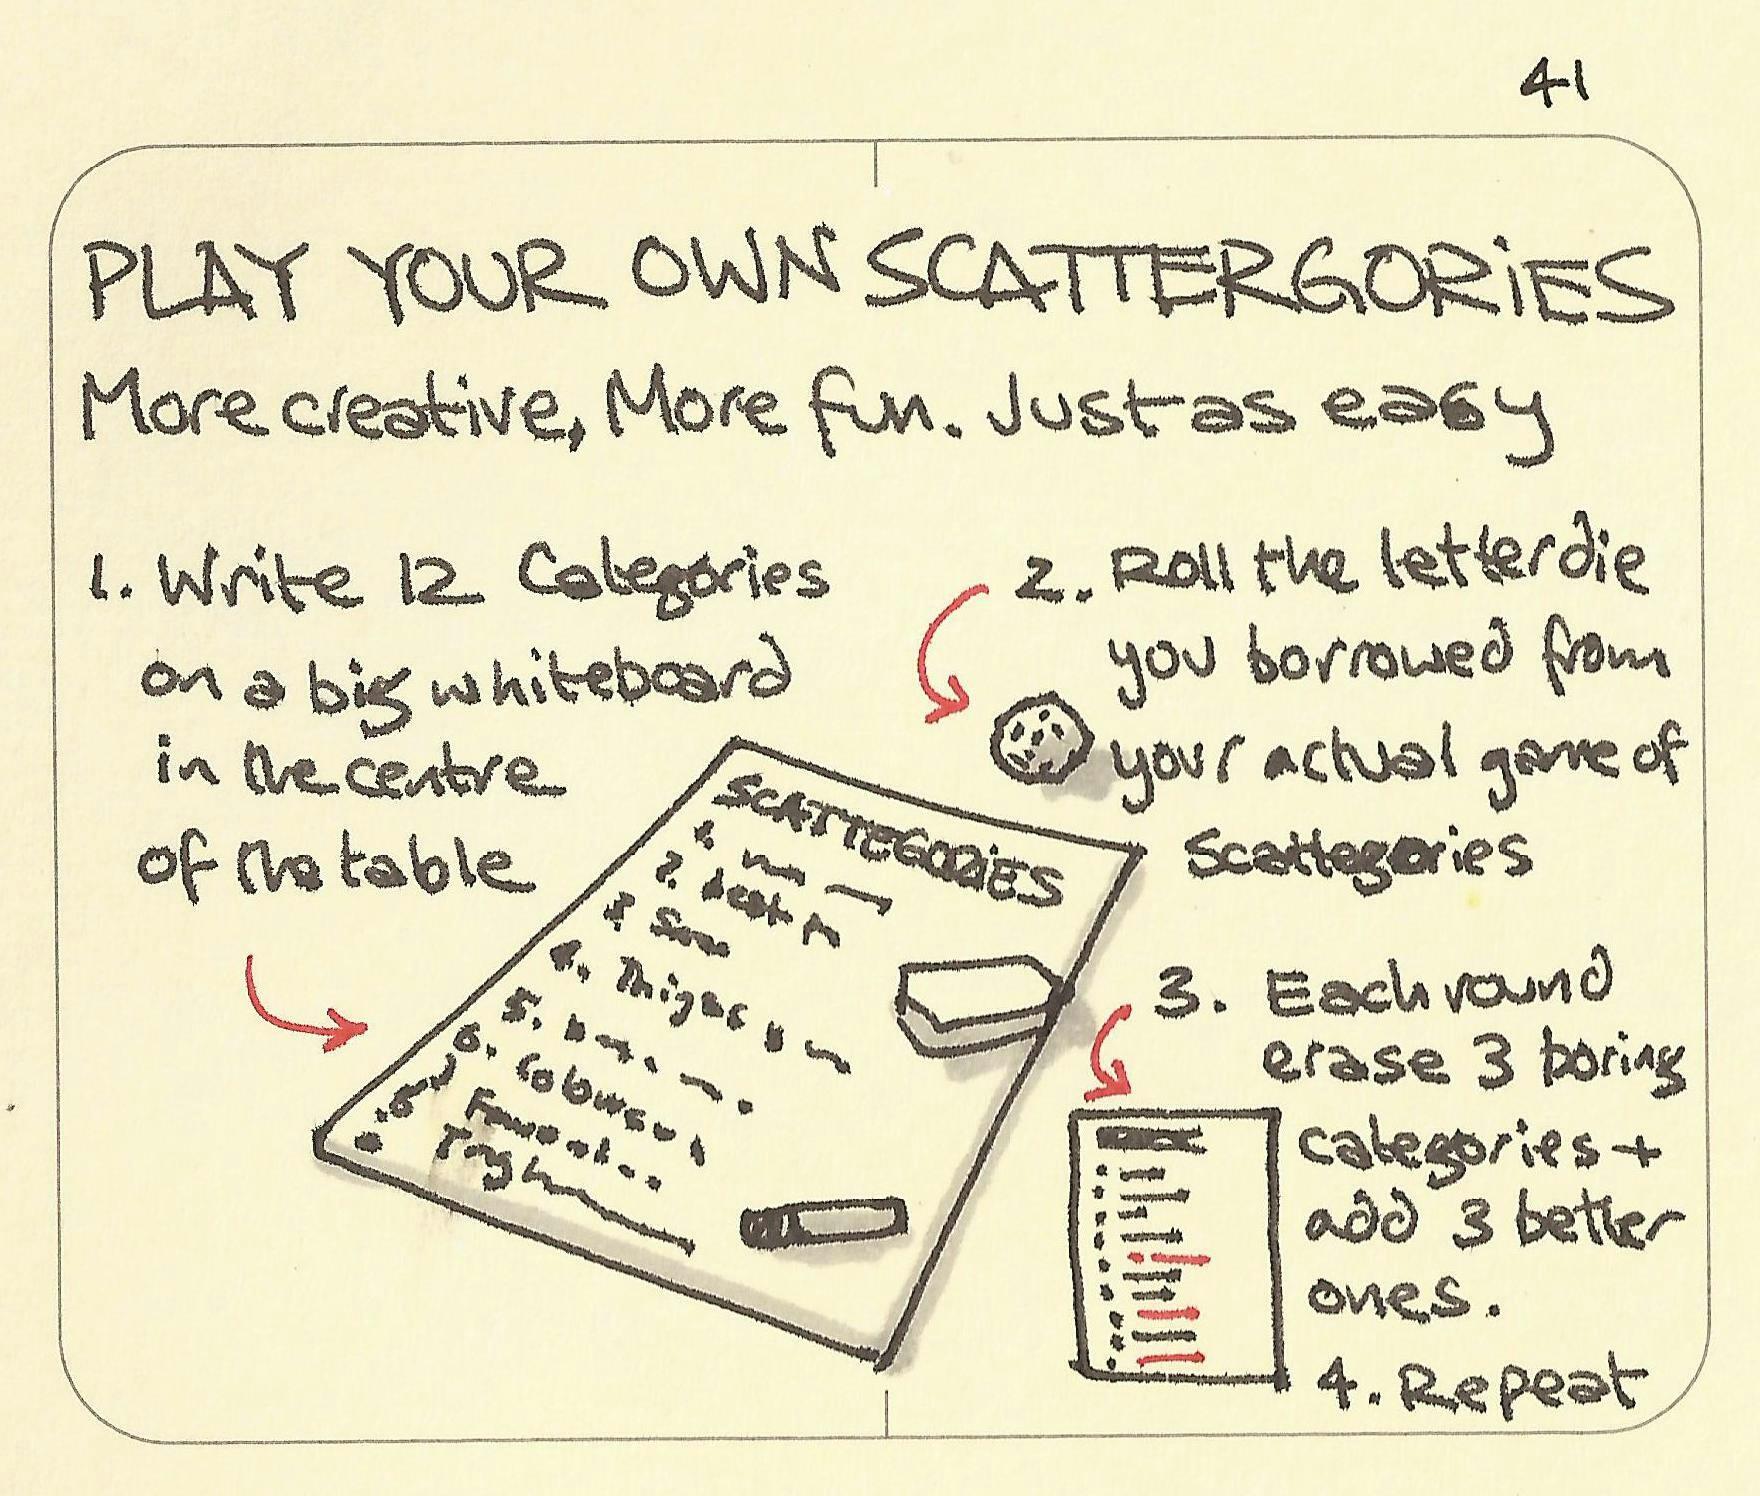 41
PLAY YOUR OWN SCATTERGORIES
More creative, More fun. Just as easy
1. Write 12 Categories
on a big whiteboard
in the centre
of the table
2. Roll the letter die
you borrowed from
your actual game of
Scattegories
SCATTEGORIES
1.
2.
3.
4. Things
5.
6. Colours
3. Each round
erase 3 boring
categories +
add 3 better
ones.
4. Repeat